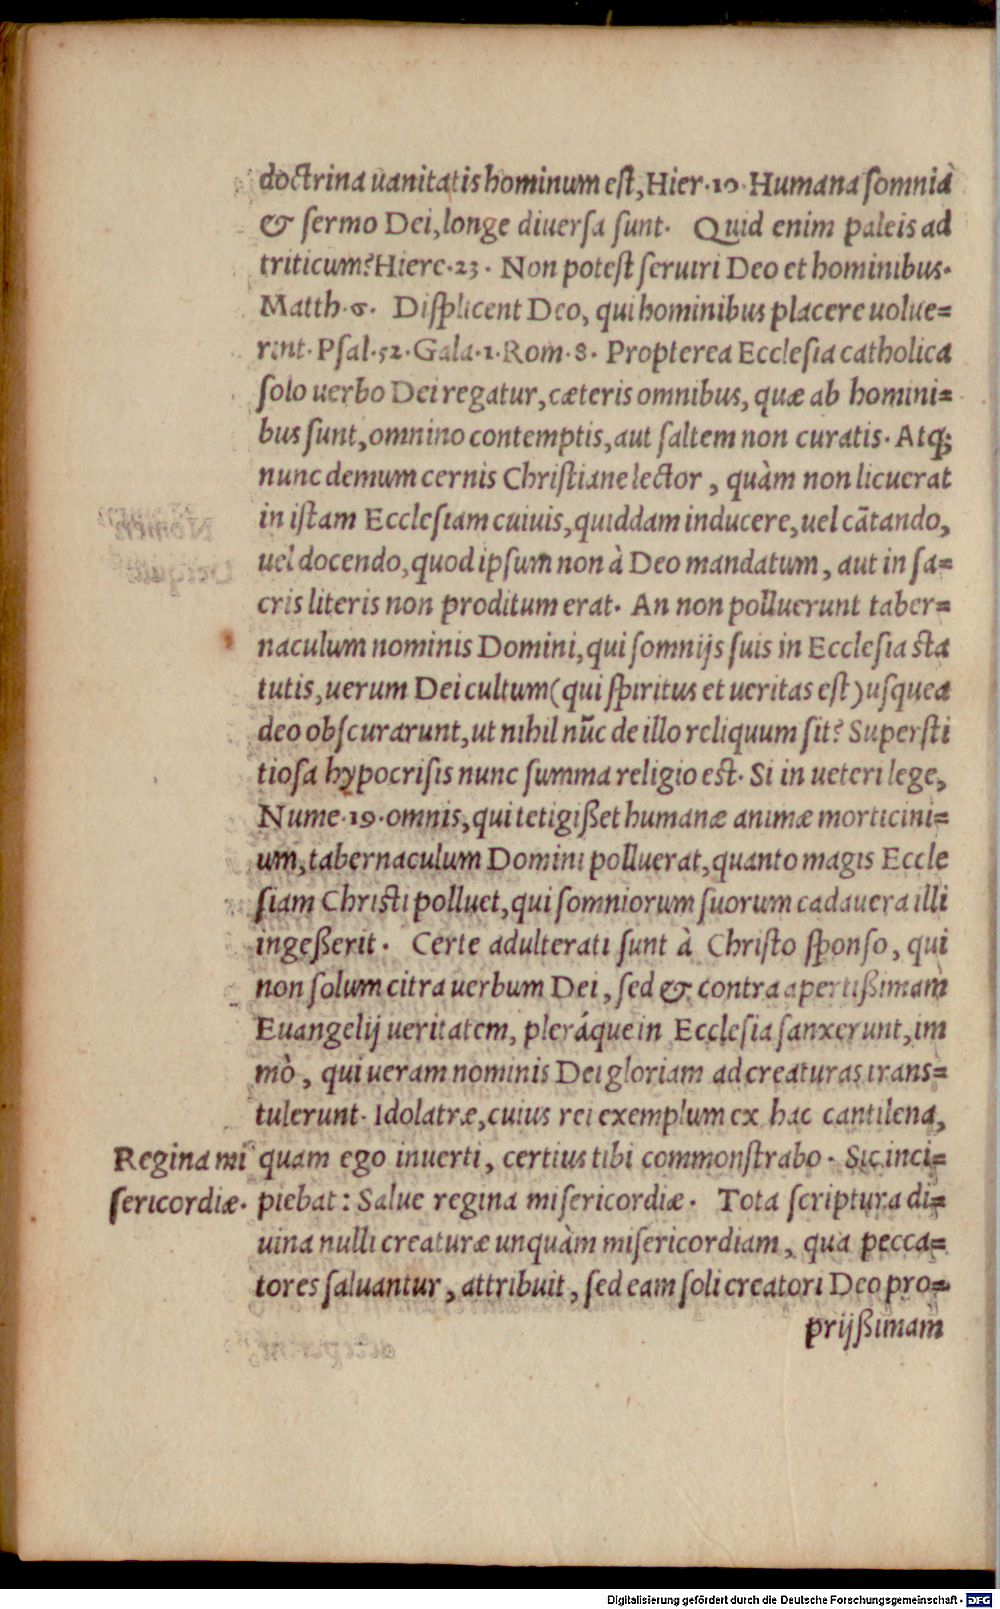 doctrina uanitatis hominum est, Hier. 10. Humana somnia
& sermo Dei, longe diuersa sunt. Quid enim paleis ad
triticum? Hiere. 23. Non potest seruiri Deo et hominibus.
Matth. 6. Displicent Deo, qui hominibus placere uolue=
rint. Psal. 52. Gala. 1. Rom. 8. Propterea Ecclesia catholica
solo uerbo Dei regatur, cæteris omnibus, quæ ab homini=
bus sunt, omnino contemptis, aut saltem non curatis. Atq;
nunc demum cernis Christiane lector, quàm non licuerat
in istam Ecclesiam cuiuis, quiddam inducere, uel cãtando,
uel docendo, quod ipsum non à Deo mandatum, aut in sa=
cris literis non proditum erat. An non polluerunt taber=
naculum nominis Domini, qui somnijs suis in Ecclesia sta
tutis, uerum Dei cultum (qui spiritus et ueritas est) usquea
deo obscurarunt, ut nihil nũc de illo reliquum sit? Supersti
tiosa hypocrisis nunc summa religio est. Si in ueteri lege,
Nume. 19. omnis, qui tetigißet humanæ animæ morticini=
um, tabernaculum Domini polluerat, quanto magis Eccle
siam Christi polluet, qui somniorum suorum cadauera illi
ingeßerit. Certe adulterati sunt à Christo sponso, qui
non solum citra uerbum Dei, sed & contra apertißimam
Euangelij ueritatem, pleráque in Ecclesia sanxerunt, im
mò, qui ueram nominis Dei gloriam ad creaturas trans=
tulerunt. Idolatræ, cuius rei exemplum ex hac cantilena,
quam ego inuerti, certius tibi commonstrabo. Sic inci=
piebat: Salue regina misericordiæ. Tota scriptura di=
uina nulli creaturæ unquàm misericordiam, qua pecca=
tores saluantur, attribuit, sed eam soli creatori Deo pro=
prijßimam
Regina mi
sericordiæ.
Digitalisierung gefördert durch die Deutsche Forschungsgemeinschaft - DFG